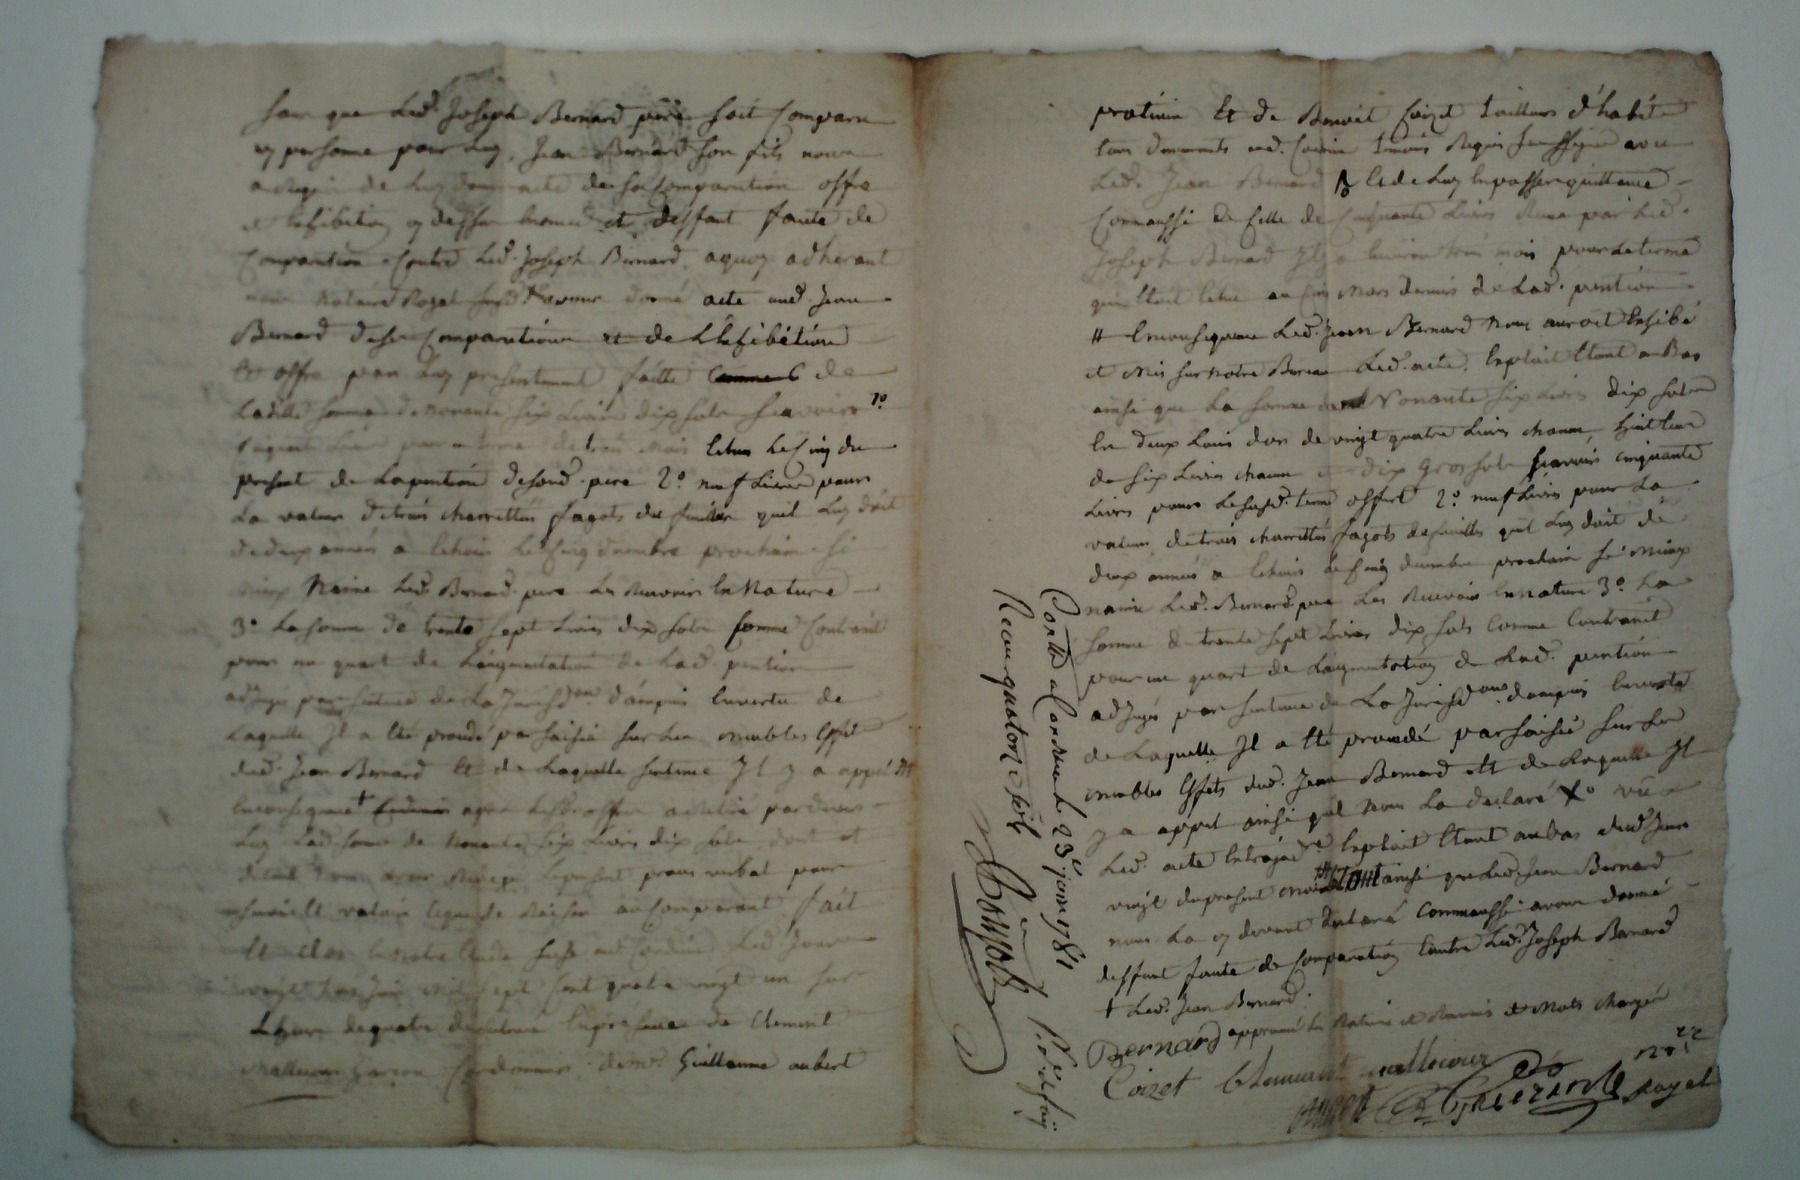 sans que Led. Joseph Bernard père soit Comparu
ny personne pour Luy, Jean Bernard son fils nous
a Requis de Luy donner acte de sa Comparution offre
et Exhibition cy dessus et deffaut faute de
Comparution Contre Led. Joseph Bernard, aquoy adherant
nous Notaire Royal avons donné acte aud. Jean
Bernard de sa Comparution et de L'Exhibition
Et offre par Luy presentement faitte de
Ladite somme de nonante six Livres dix sols sçavoir 1º
pour un terme de trois mois Echus Le Cinq du
present de La pention de sond. pere 2º neuf Livres pour
La valeur de trois charrettés fagots de feuilles quil Luy doit
de deux années a Echoir Le Cinq decembre prochain si
mieux Naime Led. Bernard pere Les Recevoir En Nature
3º La somme de trente sept Livres dix sols Comme Contraint
pour un quart de L'augmentation de Lad. pention
adjugée par sentence de La Jurisd.on d'ampuis En vertu de
Laquelle Il a été procédé par saisie sur Les meubles Effets
dud. Jean Bernard Et de Laquelle sentence Il y a appel
En consequence apres Lesd. offres a Retiré pardevers
Luy Lad. somme de nonante six Livres dix sols dont et
du tout nous avons Redigé Le present procès verbal pour
servir Et valoir ce que de Raison au Comparant. fait
Et clos En notre Etude aud. Condrieu Led. Jour
vingt trois Juin mil sept Cent quatre vingt un sur
L'heure de quatre de Relevée En presence de Clement
Mallecour Garçon Cordonnier, de Mr. Guillaume aubert
praticien Et de Benoit Coizet Tailleur d'habits
tous demeurants aud. Condrieu Temoins Requis soussignés avec
Led. Jean Bernard Et de Luy En passer quittance
Comme aussi de Celle de Cinquante Livres deue par Led.
Joseph Bernard Il y a Environ trois mois pour Le terme
qui Etoit Echu au Cinq Mars dernier de Lad. pention
# En consequence Led. Jean Bernard Nous auroit Exhibé
et Mis sur notre Bureau Led. acte. Exploit Etant au Bas
ainsi que La somme de Nonante six Livres dix sols
En deux Louis dor de vingt quatre Livres chacun, huit Ecus
de six Livres chacun et dix Gros sols sçavoir cinquante
Livres pour Le susd. terme offert 2º neuf Livres pour La
valeur de trois charrettés fagots de feuilles quil Luy doit de
deux années a Echoir Le Cinq decembre prochain si Mieux
naime Led. Bernard pere Les Recevoir En nature 3º La
somme de trente sept Livres dix sols Comme Contraint
pour un quart de L'augmentation de Lad. pention
adjugée par sentence de La Jurisd.on d'ampuis En vertu
de Laquelle Il a été procédé par saisie sur Les
meubles Effets dud. Jean Bernard Et de Laquelle Il
y a appel ainsi quil Nous La declaré vû
Led. acte Exploit Etant au bas dud. Jour
vingt du present mois ainsi que Led. Jean Bernard
nous La cy devant declaré Comme aussi avons donné
deffaut faute de Comparution Contre Led. Joseph Bernard
+ Led. Jean Bernard.
Bernard approuvé Les Ratures et Renvois et Mots chargés
Coizet Clement mallecour
aubert
Royal
Contlé a Condrieu Le 23e juin 1781
Reçu quatorze sols